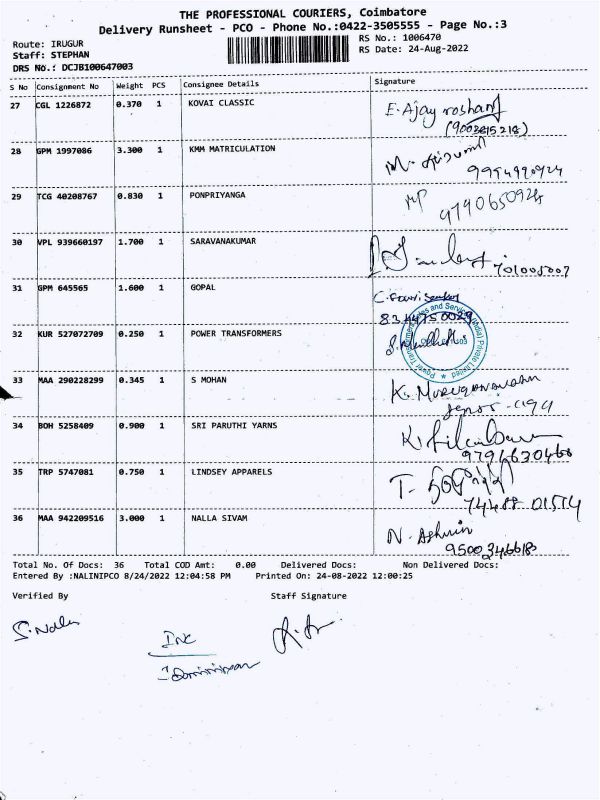 THE PROFESSIONAL COURIERS, Coimbatore
Delivery Runsheet - PCO - Phone No.:0422-3505555 - Page No.:3
Route: IRUGUR
Staff: STEPHAN
DRS No.: DCJB100647003
RS No.: 1006470
RS Date: 24-Aug-2022
S No Consignment No Weight PCS Consignee Details Signature
27 CGL 1226872 0.370 1 KOVAI CLASSIC E. Ajay roshan
28 GPM 1997086 3.300 1 KMM MATRICULATION M.
9994990924
29 TCG 40208767 0.830 1 PONPRIYANGA MP
9790650924
30 VPL 939660197 1.700 1 SARAVANAKUMAR
31 GPM 645565 1.600 1 GOPAL
32 KUR 527072709 0.250 1 POWER TRANSFORMERS
33 MAA 290228299 0.345 1 S MOHAN K.
34 BOH 5258409 0.900 1 SRI PARUTHI YARNS K.
9794630468
35 TRP 5747081 0.750 1 LINDSEY APPARELS T.
74488 01514
36 MAA 942209516 3.000 1 NALLA SIVAM N. Ashwin
Total No. Of Docs: 36 Total COD Amt: 0.00 Delivered Docs: Non Delivered Docs:
Entered By :NALINIPCO 8/24/2022 12:04:58 PM Printed On: 24-08-2022 12:00:25
Verified By Staff Signature